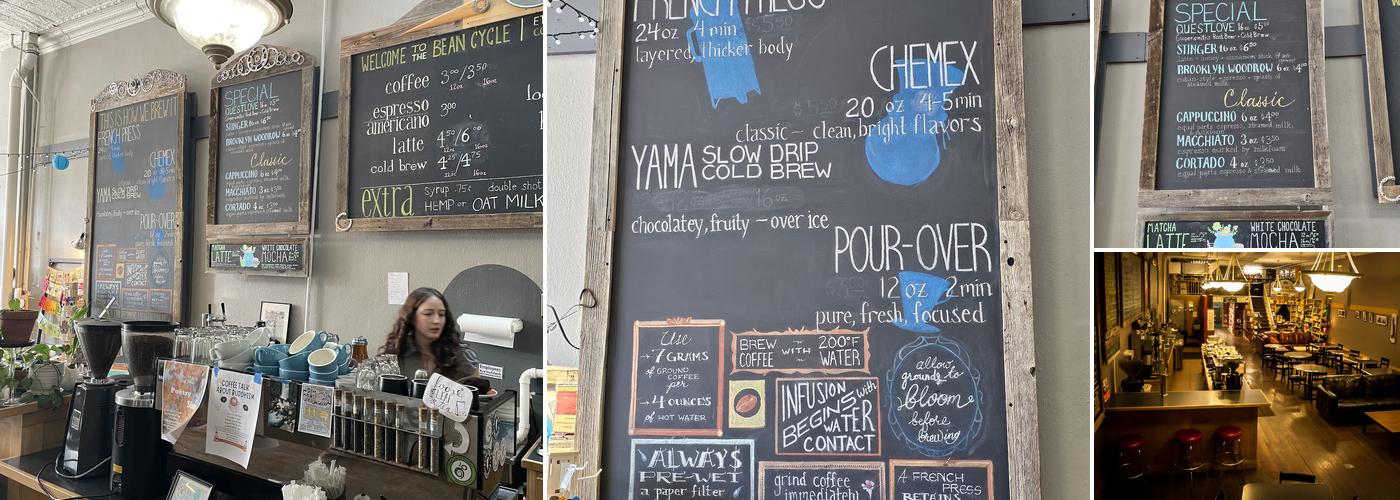 THIS IS HOW WE BREW IT
FRENCH PRESS
CHEMEX
YAMA SLOW DRIP
COLD BREW
POUR-OVER
SPECIAL
QUESTLOVE 16 oz $5
STINGER 16 oz $6
BROOKLYN WOODROW 6 oz $4
Classic
CAPPUCCINO 6 oz $4
MACCHIATO 3 oz $3.50
CORTADO 4 oz $3.50
MATCHA
LATTE
WHITE CHOCOLATE
MOCHA
WELCOME TO THE BEAN CYCLE
coffee 3.00/3.50
12oz 16oz
espresso 3.00
americano
latte 4.50/6.00
12oz 16oz
cold brew 4.25/4.75
extra syrup .75¢ double shot
HEMP or OAT MILK
Poetry
COFFEE TALK
ABOUT BUDDHISM
FRENCH PRESS
24 oz 4 min
layered, thicker body
CHEMEX
20 oz 4-5 min
classic – clean, bright flavors
YAMA SLOW DRIP
COLD BREW
16 oz
chocolatey, fruity – over ice
POUR-OVER
12 oz 2 min
pure, fresh, focused
Use
→ 7 GRAMS
of GROUND
COFFEE
per
→ 4 OUNCES
of HOT WATER
BREW WITH 200°F
COFFEE WATER
INFUSION
BEGINS with
WATER
CONTACT
allow
grounds to
bloom
before
brewing
ALWAYS
PRE-WET
a paper filter
grind coffee
immediately
A FRENCH
PRESS
RETAINS
SPECIAL
QUESTLOVE 16 oz $5
STINGER 16 oz $6
latte + honey + cinnamon stick
BROOKLYN WOODROW 6 oz $4
cuban-style espresso + splash of
steamed milk
Classic
CAPPUCCINO 6 oz $4
equal parts espresso, steamed milk,
MACCHIATO 3 oz $3.50
espresso marked by milkfoam
CORTADO 4 oz $3.50
equal parts espresso & steamed milk
MATCHA
LATTE
WHITE CHOCOLATE
MOCHA